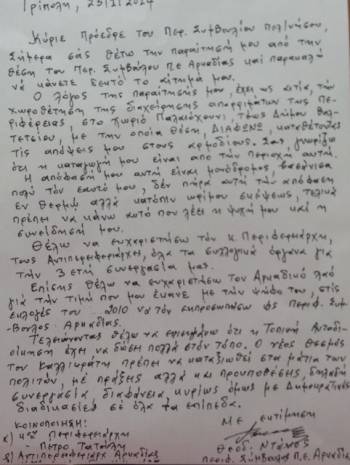 Τρίπολη, 25/1/2014
Κύριε Πρόεδρε του Περ. Συμβουλίου Πελ/νήσου,
Σήμερα σας θέτω την παραίτησή μου από την
θέση του Περ. Συμβούλου Π.Ε Αρκαδίας και παρακαλώ
να κάνετε δεκτό το αίτημά μου.
Ο λόγος της παραίτησής μου, έχει ως αιτία, την
χωροθέτηση της διαχείρησης απορριμάτων της Πε-
ριφέρειας, στο χωριό Παλαιόχουνι, τέως Δήμου Φαλ-
τετσίου, με την οποία θέση, ΔΙΑΦΩΝΩ, καταθέτοντας
τις απόψεις μου στους αρμοδίους. Σας γνωρίζω
ότι η καταγωγή μου είναι από την περιοχή αυτή.
Η απόφασή μου αυτή είναι μονόδρομος,
πολύ τον εαυτό μου, δεν πήρα αυτή την απόφαση
εν θερμώ αλλά κατόπιν ωρίμου σκέψεως, τελικά
πρέπει να κάνω αυτό που λέει η ψυχή μου και η
συνείδησή μου.
Θέλω να ευχαριστήσω τον κ. Περιφερειάρχη,
τους Αντιπεριφερειάρχη, όλα τα συλλογικά όργανα για
την 3 ετή συνεργασία μας.
Επίσης θέλω να ευχαριστήσω τον Αρκαδικό λαό
για την τιμή που μου έκανε με την ψήφο του, στις
εκλογές του 2010 να τον εκπροσωπώ ως Περιφ. Σύμ-
βουλος Αρκαδίας.
Τελειώνοντας θέλω να επισημάνω ότι η Τοπική Αυτοδι-
οίκηση έχει να δώσει πολλά στον τόπο. Ο νέος θεσμός
του Καλλικράτη πρέπει να καταξιωθεί στα μάτια των
πολιτών, με πράξεις αλλά και προϋποθέσεις, δηλαδή
συνεργασία, διαφάνεια, κυρίως όμως με Δημοκρατικές
διαδικασίες σε όλα τα επίπεδα.
ΚΟΙΝΟΠΟΙΗΣΗ: Με εκτίμηση
α) κ. Περιφερειάρχη
Πέτρο Τατούλη Θεόδ. Ντάνος
β) Αντιπεριφερειάρχ. Αρκαδίας Περιφ. Σύμβουλος Π.Ε. Αρκαδία